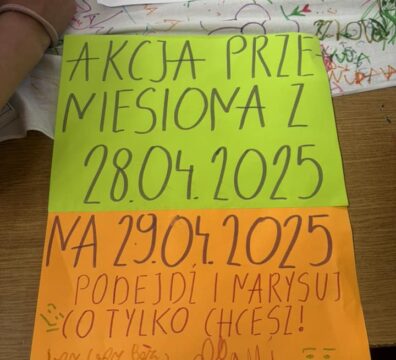 AKCJA PRZE
NIESIONA Z
28.04.2025
NA 29.04.2025
PODEJDŹ I NARYSUJ
CO TYLKO CHCESZ!